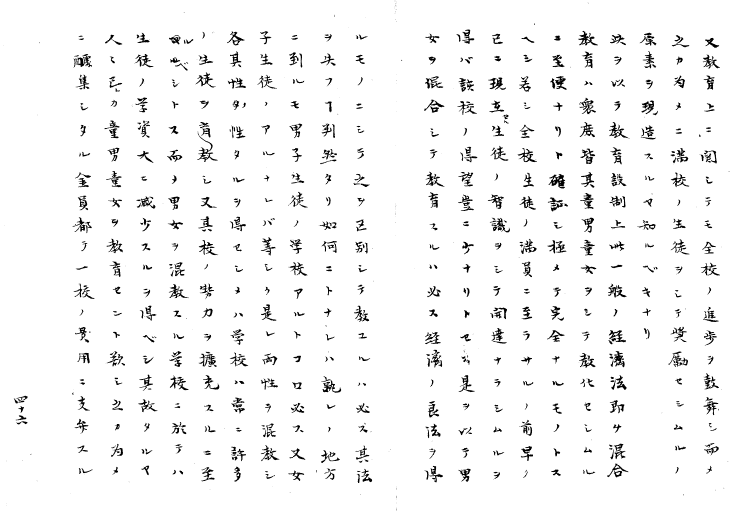 又教育上ニ関シテモ全校ノ進歩ヲ鼓舞シ而メ
之カ為メニ満校ノ生徒ヲシテ奨励セシムルノ
原素ヲ現造スルヤ知ルベキナリ
決ヲ以テ教育設制上此一般ノ経済法即チ混合
教育ハ衆庶皆其童男童女ヲシテ教化セシムル
ニ至便ナリト確証シ極メテ完全ナルモノトス
ヘシ若シ全校生徒ノ満員ニ至ラサルノ前早ク
已ニ現立セル生徒ノ智識ヲシテ開達ナラシムルヲ
得バ該校ノ得望豊ニ少ナリトセンヤ是ヲ以テ男
女ヲ混合シテ教育スルハ必ス経済ノ良法ヲ得
ルモノニシテ之ヲ区別シテ教ユルハ必ス其法
ヲ失フヿ判然タリ如何ニトナレハ孰レノ地方
ニ到ルモ男子生徒ノ学校アルトコロ必ス又女
子生徒ノアルナレバ等シク是レ両性ヲ混教シ
各其性ノ性タルヲ得セシメハ学校ハ常ニ許多
ノ生徒ヲ育教シ又其校ノ勢力ヲ擴充スルニ至
ルベシトス而メ男女ヲ混教スル学校ニ於テハ
生徒ノ学資大ニ減少スルヲ得ベシ其故タルヤ
人々已カ童男童女ヲ教育セント欲シ之カ為メ
ニ醵集シタル金員都テ一校ノ費用ニ支弁スル
四十六